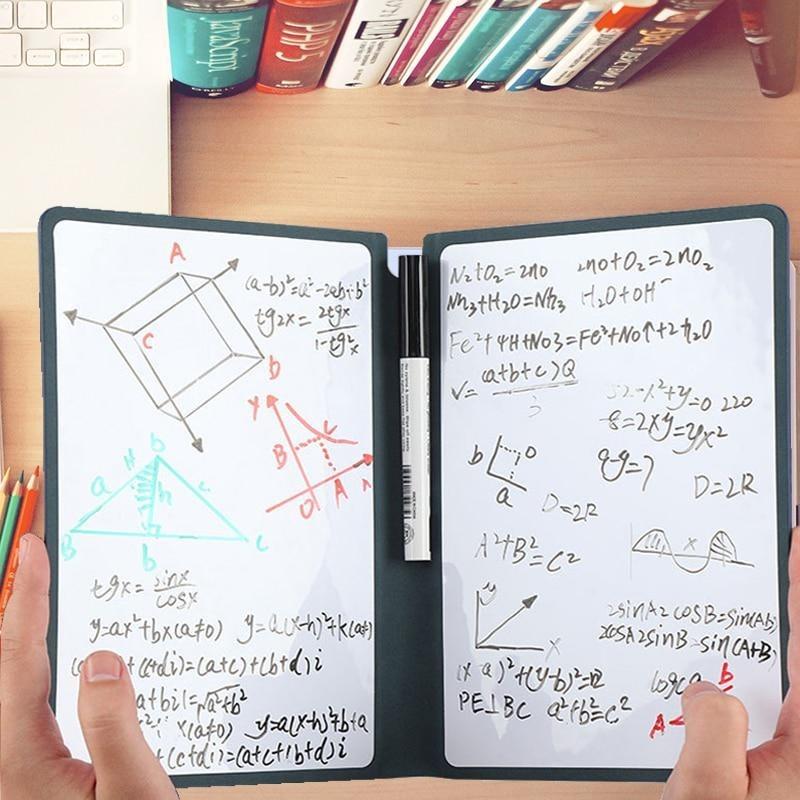 JavaScript
PHP 5
A
C
b
(a-b)²=a²-2ab+b²
tg2x=2tgx
1-tg²x
Y
B
C
O
A
b
H
a
h
c
B
b
C
tgx=sinx
cosx
y=ax²+bx(a≠0) y=a(x-h)²+k(a≠)
(c+di)=(a+c)+(b+d)i
a+bi|=√a²+b²
x(a≠0) y=a(x-h)²+b+a
+(c+di)=(a+c+(b+d)i
N₂+O₂=2no 2no+O₂=2nO₂
Nh₃+H₂O=Nh₃ H₂O+OH⁻
Fe²+4H+No3=Fe²+No↑+2h₂O
V=(a+b+c)Q
3
52-x²+y=0 220
-8=2xy=yx²
qy=7
b
O
a
D=2R
D=2R
A²+B²=C²
x
y
x
2sinA2cosB=sin(Ab)
2cosA2sinB=sin(A+B)
(x-a)²+(y-b)²=
PE⊥BC a²+b²=c²
b
A